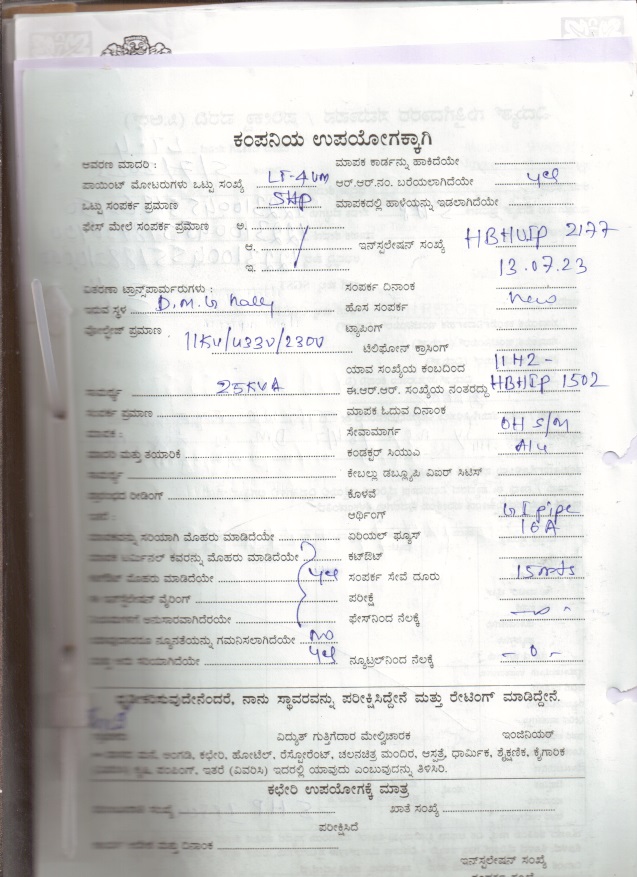 ಕಂಪನಿಯ ಉಪಯೋಗಕ್ಕಾಗಿ
ಆವರಣ ಮಾದರಿ : ಮಾಪಕ ಕಾರ್ಡನ್ನು ಹಾಕಿದೆಯೇ
ಪಾಯಿಂಟ್ ಮೋಟರುಗಳು ಒಟ್ಟು ಸಂಖ್ಯೆ LT-4 ಆರ್.ಆರ್.ನಂ. ಬರೆಯಲಾಗಿದೆಯೇ yes
ಒಟ್ಟು ಸಂಪರ್ಕ ಪ್ರಮಾಣ 5HP ಮಾಪಕದಲ್ಲಿ ಹಾಳೆಯನ್ನು ಇಡಲಾಗಿದೆಯೇ
ಫೇಸ್ ಮೇಲೆ ಸಂಪರ್ಕ ಪ್ರಮಾಣ ಅ.
ಆ. ಇನ್‌ಸ್ಟಲೇಷನ್ ಸಂಖ್ಯೆ HBHUIP 2177
ಇ. 13.07.23
ವಿತರಣಾ ಟ್ರಾನ್ಸ್‌ಪಾರ್ಮರುಗಳು : ಸಂಪರ್ಕ ದಿನಾಂಕ
ಇರುವ ಸ್ಥಳ D.M.G halley ಹೊಸ ಸಂಪರ್ಕ new
ವೋಲ್ಟೇಜ್ ಪ್ರಮಾಣ 11KV/433V/230V ಟ್ಯಾಪಿಂಗ್
ಟೆಲಿಫೋನ್ ಕ್ರಾಸಿಂಗ್
ಯಾವ ಸಂಖ್ಯೆಯ ಕಂಬದಿಂದ 11H2 -
ಸಾಮರ್ಥ್ಯ 25KVA ಈ.ಆರ್.ಆರ್. ಸಂಖ್ಯೆಯ ನಂತರದ್ದು HBHIP 1502
ಸಂಪರ್ಕ ಪ್ರಮಾಣ ಮಾಪಕ ಓದುವ ದಿನಾಂಕ
ಮಾಪಕ : ಸೇವಾಮಾರ್ಗ OH S/M
ಮಾದರಿ ಮತ್ತು ತಯಾರಿಕೆ ಕಂಡಕ್ಟರ್ ಸಿಯುಎ
ಸಾಮರ್ಥ್ಯ ಕೇಬಲ್ಲು ಡಬ್ಲ್ಯೂಪಿ ವಿಐರ್ ಸಿಟಿಸ್
ಪ್ರಾರಂಭದ ರೀಡಿಂಗ್ ಕೊಳವೆ
ಆರ್ಥಿಂಗ್ GI pipe
ಮಾಪಕವನ್ನು ಸರಿಯಾಗಿ ಮೊಹರು ಮಾಡಿದೆಯೇ ಏರಿಯಲ್ ಫ್ಯೂಸ್ 16A
ಮಾಪಕ ಟರ್ಮಿನಲ್ ಕವರನ್ನು ಮೊಹರು ಮಾಡಿದೆಯೇ ಕಟ್‌ಔಟ್
ಕಟ್‌ಔಟ್ ಮೊಹರು ಮಾಡಿದೆಯೇ yes ಸಂಪರ್ಕ ಸೇವೆ ದೂರು 15mts
ಈ ಇನ್‌ಸ್ಟಲೇಷನ್ ವೈರಿಂಗ್ ಪರೀಕ್ಷೆ
ನಿಯಮಗಳಿಗೆ ಅನುಸಾರವಾಗಿದೆರೆಯೇ ಫೇಸ್‌ನಿಂದ ನೆಲಕ್ಕೆ
ಯಾವುದಾದರೂ ನ್ಯೂನತೆಯನ್ನು ಗಮನಿಸಲಾಗಿದೆಯೇ no
ಸರಿಯಾಗಿದೆಯೇ yes ನ್ಯೂಟ್ರಲ್‌ನಿಂದ ನೆಲಕ್ಕೆ - 0 -
ದೃಢೀಕರಿಸುವುದೇನೆಂದರೆ, ನಾನು ಸ್ಥಾವರವನ್ನು ಪರೀಕ್ಷಿಸಿದ್ದೇನೆ ಮತ್ತು ರೇಟಿಂಗ್ ಮಾಡಿದ್ದೇನೆ.
ವಿದ್ಯುತ್ ಗುತ್ತಿಗೆದಾರ ಮೇಲ್ವಿಚಾರಕ ಇಂಜಿನಿಯರ್
ಮನೆ, ಅಂಗಡಿ, ಕಛೇರಿ, ಹೋಟೆಲ್, ರೆಸ್ಟೋರೆಂಟ್, ಚಲನಚಿತ್ರ ಮಂದಿರ, ಆಸ್ಪತ್ರೆ, ಧಾರ್ಮಿಕ, ಶೈಕ್ಷಣಿಕ, ಕೈಗಾರಿಕ
ಕೃಷಿ, ಪಂಪಿಂಗ್, ಇತರೆ (ವಿವರಿಸಿ) ಇದರಲ್ಲಿ ಯಾವುದು ಎಂಬುವುದನ್ನು ತಿಳಿಸಿರಿ.
ಕಛೇರಿ ಉಪಯೋಗಕ್ಕೆ ಮಾತ್ರ
ಸಂಖ್ಯೆ ಖಾತೆ ಸಂಖ್ಯೆ
ಪರೀಕ್ಷಿಸಿದೆ
ಮತ್ತು ದಿನಾಂಕ
ಇನ್‌ಸ್ಟಲೇಷನ್ ಸಂಖ್ಯೆ